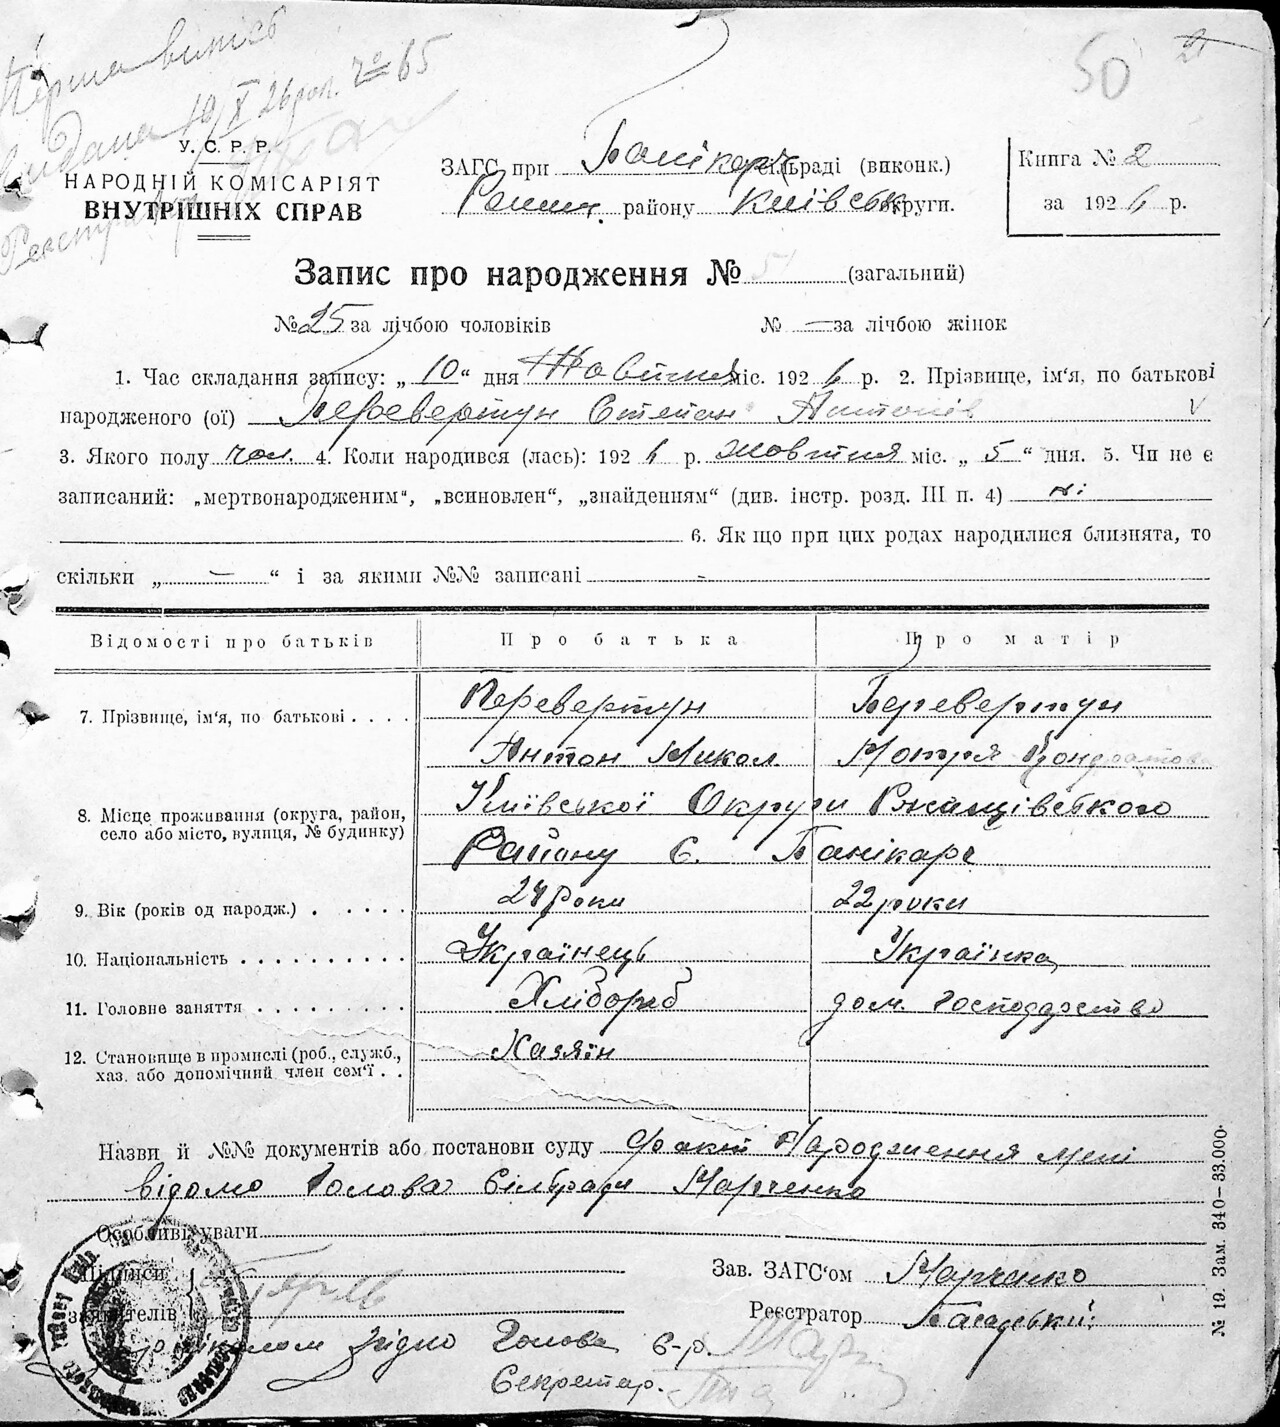 Перша випись
видана 19/X 26 рок. № 65
50
У. С. Р. Р.
НАРОДНІЙ КОМІСАРІЯТ
ВНУТРІШНІХ СПРАВ
ЗАГС при сільраді (виконк.)
району Київськ округи.
Книга № 2
за 1926 р.
Запис про народження № 51 (загальний)
№ 25 за лічбою чоловіків № — за лічбою жінок
1. Час складання запису: „ 10 “ дня Жовтня міс. 1926 р. 2. Прізвище, ім‘я, по батькові
народженого (ої) Перевертун Степан Антонів
3. Якого полу чол. 4. Коли народився (лась): 1926 р. жовтня міс. „ 5 “ дня. 5. Чи не є
записаний: „мертвонародженим“, „всиновлен“, „знайденням“ (див. інстр. розд. III п. 4) ні
6. Як що при цих родах народилися близнята, то
скільки „ — “ і за якими №№ записані -
Відомості про батьків Про батька Про матір
7. Прізвище, ім‘я, по батькові . . . . Перевертун Перевертун
Антон Микол. Мотря Кондратов
8. Місце проживання (округа, район, село або місто, вулиця, № будинку) Київської Округи Ржищівського
Району С. Панікарч
9. Вік (років од народж.) . . . . . 24 роки 22 роки
10. Національність . . . . . . . . . . Українець Українка
11. Головне заняття . . . . . . . . . Хлібороб дом. господарство
12. Становище в промислі (роб., служб., хаз. або допомічний член сем‘ї . . Хазяїн
Назви й №№ документів або постанови суду факт Народження мені
відомо Голова Сільради Марченко
Особливі уваги
Підписи
заявителів
Зав. ЗАГС‘ом Марченко
Реєстратор
згідно Голова с-р.
Секретар.
№ 19. Зам. 340—33.000.